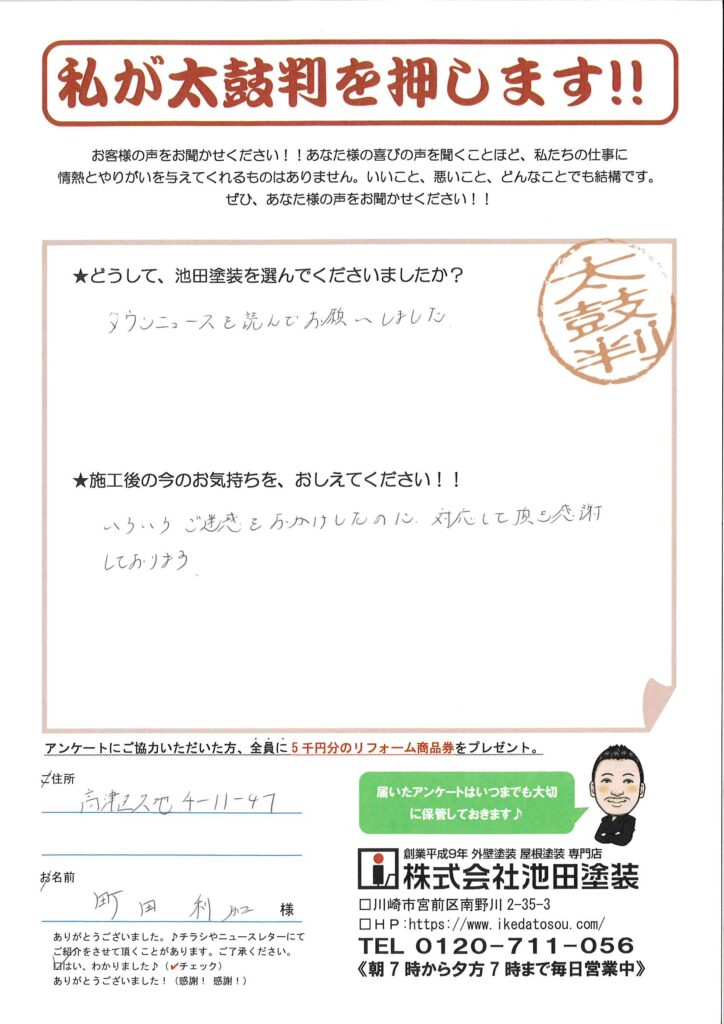 私が太鼓判を押します!!
お客様の声をお聞かせください！！あなた様の喜びの声を聞くことほど、私たちの仕事に
情熱とやりがいを与えてくれるものはありません。いいこと、悪いこと、どんなことでも結構です。
ぜひ、あなた様の声をお聞かせください！！
太鼓判
★どうして、池田塗装を選んでくださいましたか？
タウンニュースを読んでお願いしました
★施工後の今のお気持ちを、おしえてください！！
いろいろご迷惑をおかけしたのに、対応して頂き感謝
しております。
アンケートにご協力いただいた方、全員に5千円分のリフォーム商品券をプレゼント。
ご住所
高津区久地 4-11-47
お名前
町田 利 様
ありがとうございました。♪チラシやニュースレターにて
ご紹介をさせて頂くことがあります。ご了承ください。
☑はい、わかりました♪（✔チェック）
ありがとうございました！（感謝！感謝！）
届いたアンケートはいつまでも大切
に保管しておきます♪
創業平成9年 外壁塗装 屋根塗装 専門店
株式会社池田塗装
□川崎市宮前区南野川 2-35-3
□ＨＰ:https://www.ikedatosou.com/
TEL 0120-711-056
《朝7時から夕方7時まで毎日営業中》